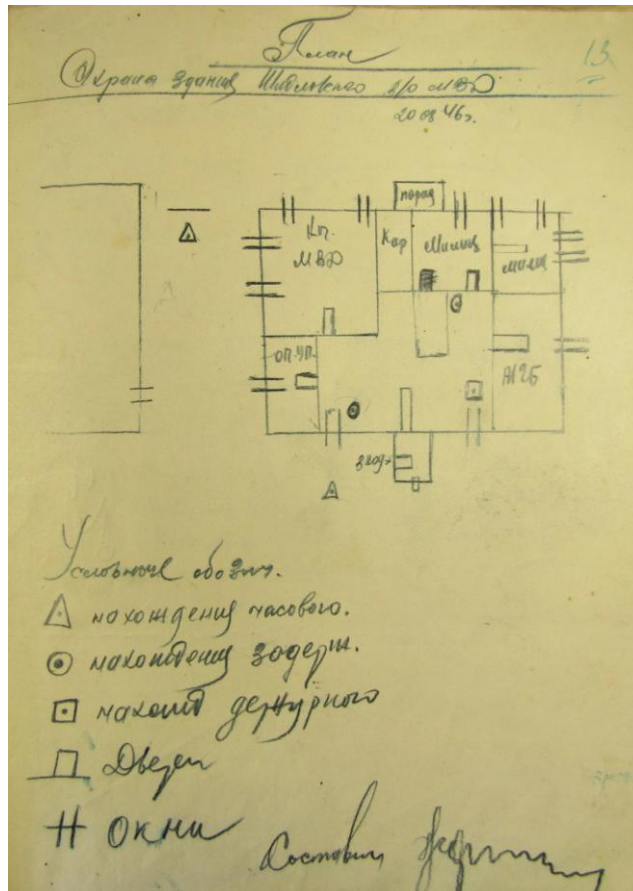 План
13
Охрана здания Шиловского р/о МВД
20 08 46г.
парад
Кп.
МВД
Кар
Милиц
милиц
ОП.УП.
А12Б
вход
Условные обозн.
нахождения часового.
нахождения задерж.
находд дежурного
Двери
Окни
Составил